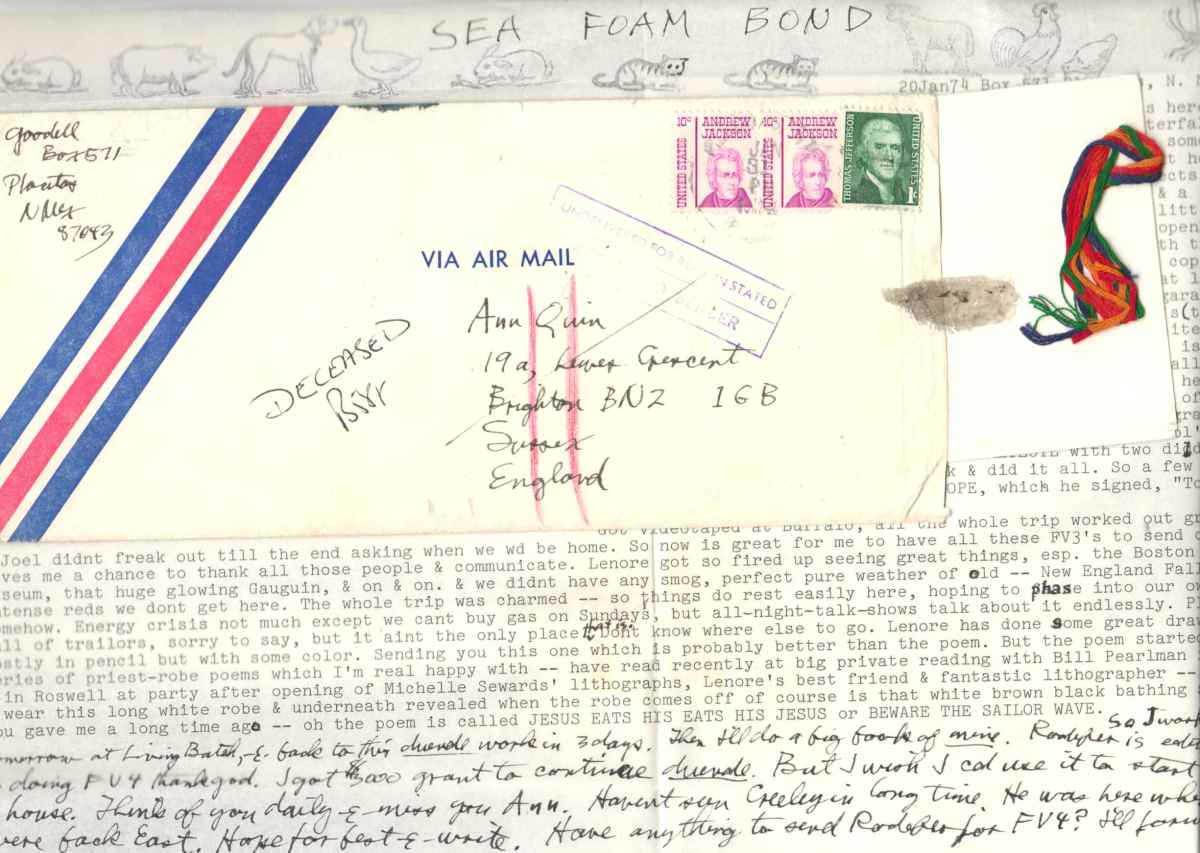 SEA FOAM BOND
20Jan74 Box
, N.
Goodell
Box 571
Placitas
N Mex
87043
10c ANDREW JACKSON
UNITED STATES
10c ANDREW JACKSON
UNITED STATES
THOMAS JEFFERSON
UNITED STATES
1c
VIA AIR MAIL
UNDELIVERED FOR REASON STATED
DECEASED
Ann Quin
19a, Lewes Crescent
Brighton BN2 1GB
Sussex
England
s her
terfa
some
t h
ects
& a
litt
open
th t
cop
at l
gara
s(t
ite
is
all
he
of
gra
pl'
with two did
k & did it all. So a few
OPE, which he signed, "To
Got videotaped at Buffalo, all the whole trip worked out gr
Joel didnt freak out till the end asking when we wd be home. So now is great for me to have all these FV3's to send o
ves me a chance to thank all those people & communicate. Lenore got so fired up seeing great things, esp. the Boston
seum, that huge glowing Gauguin, & on & on. & we didnt have any smog, perfect pure weather of old -- New England Fall
ntense reds we dont get here. The whole trip was charmed -- so things do rest easily here, hoping to phase into our o
omehow. Energy crisis not much except we cant buy gas on Sundays, but all-night-talk-shows talk about it endlessly. P
ll of trailors, sorry to say, but it aint the only place that is. Dont know where else to go. Lenore has done some great draw
ostly in pencil but with some color. Sending you this one which is probably better than the poem. But the poem starte
eries of priest-robe poems which I'm real happy with -- have read recently at big private reading with Bill Pearlman
in Roswell at party after opening of Michelle Sewards' lithographs, Lenore's best friend & fantastic lithographer --
wear this long white robe & underneath revealed when the robe comes off of course is that white brown black bathing
ou gave me a long time ago -- oh the poem is called JESUS EATS HIS EATS HIS JESUS or BEWARE THE SAILOR WAVE. So I work
morrow at Living Batch, & back to this duende work in 3 days. Then I'll do a big book of mine. Rodefer is
doing FV4 thank god. I got $3,000 grant to continue duende. But I wish I cd use it to start
house. Think of you daily & miss you Ann. Havent seen Creeley in long time. He was here
were back East. Hope for best & write. Have anything to send Rodefer for FV4? I'll forw